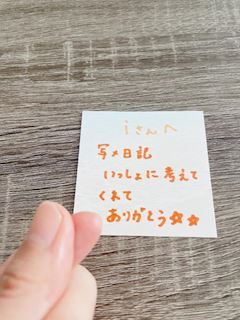 iさんへ
写メ日記
いっしょに考えて
くれて
ありがとう☆★